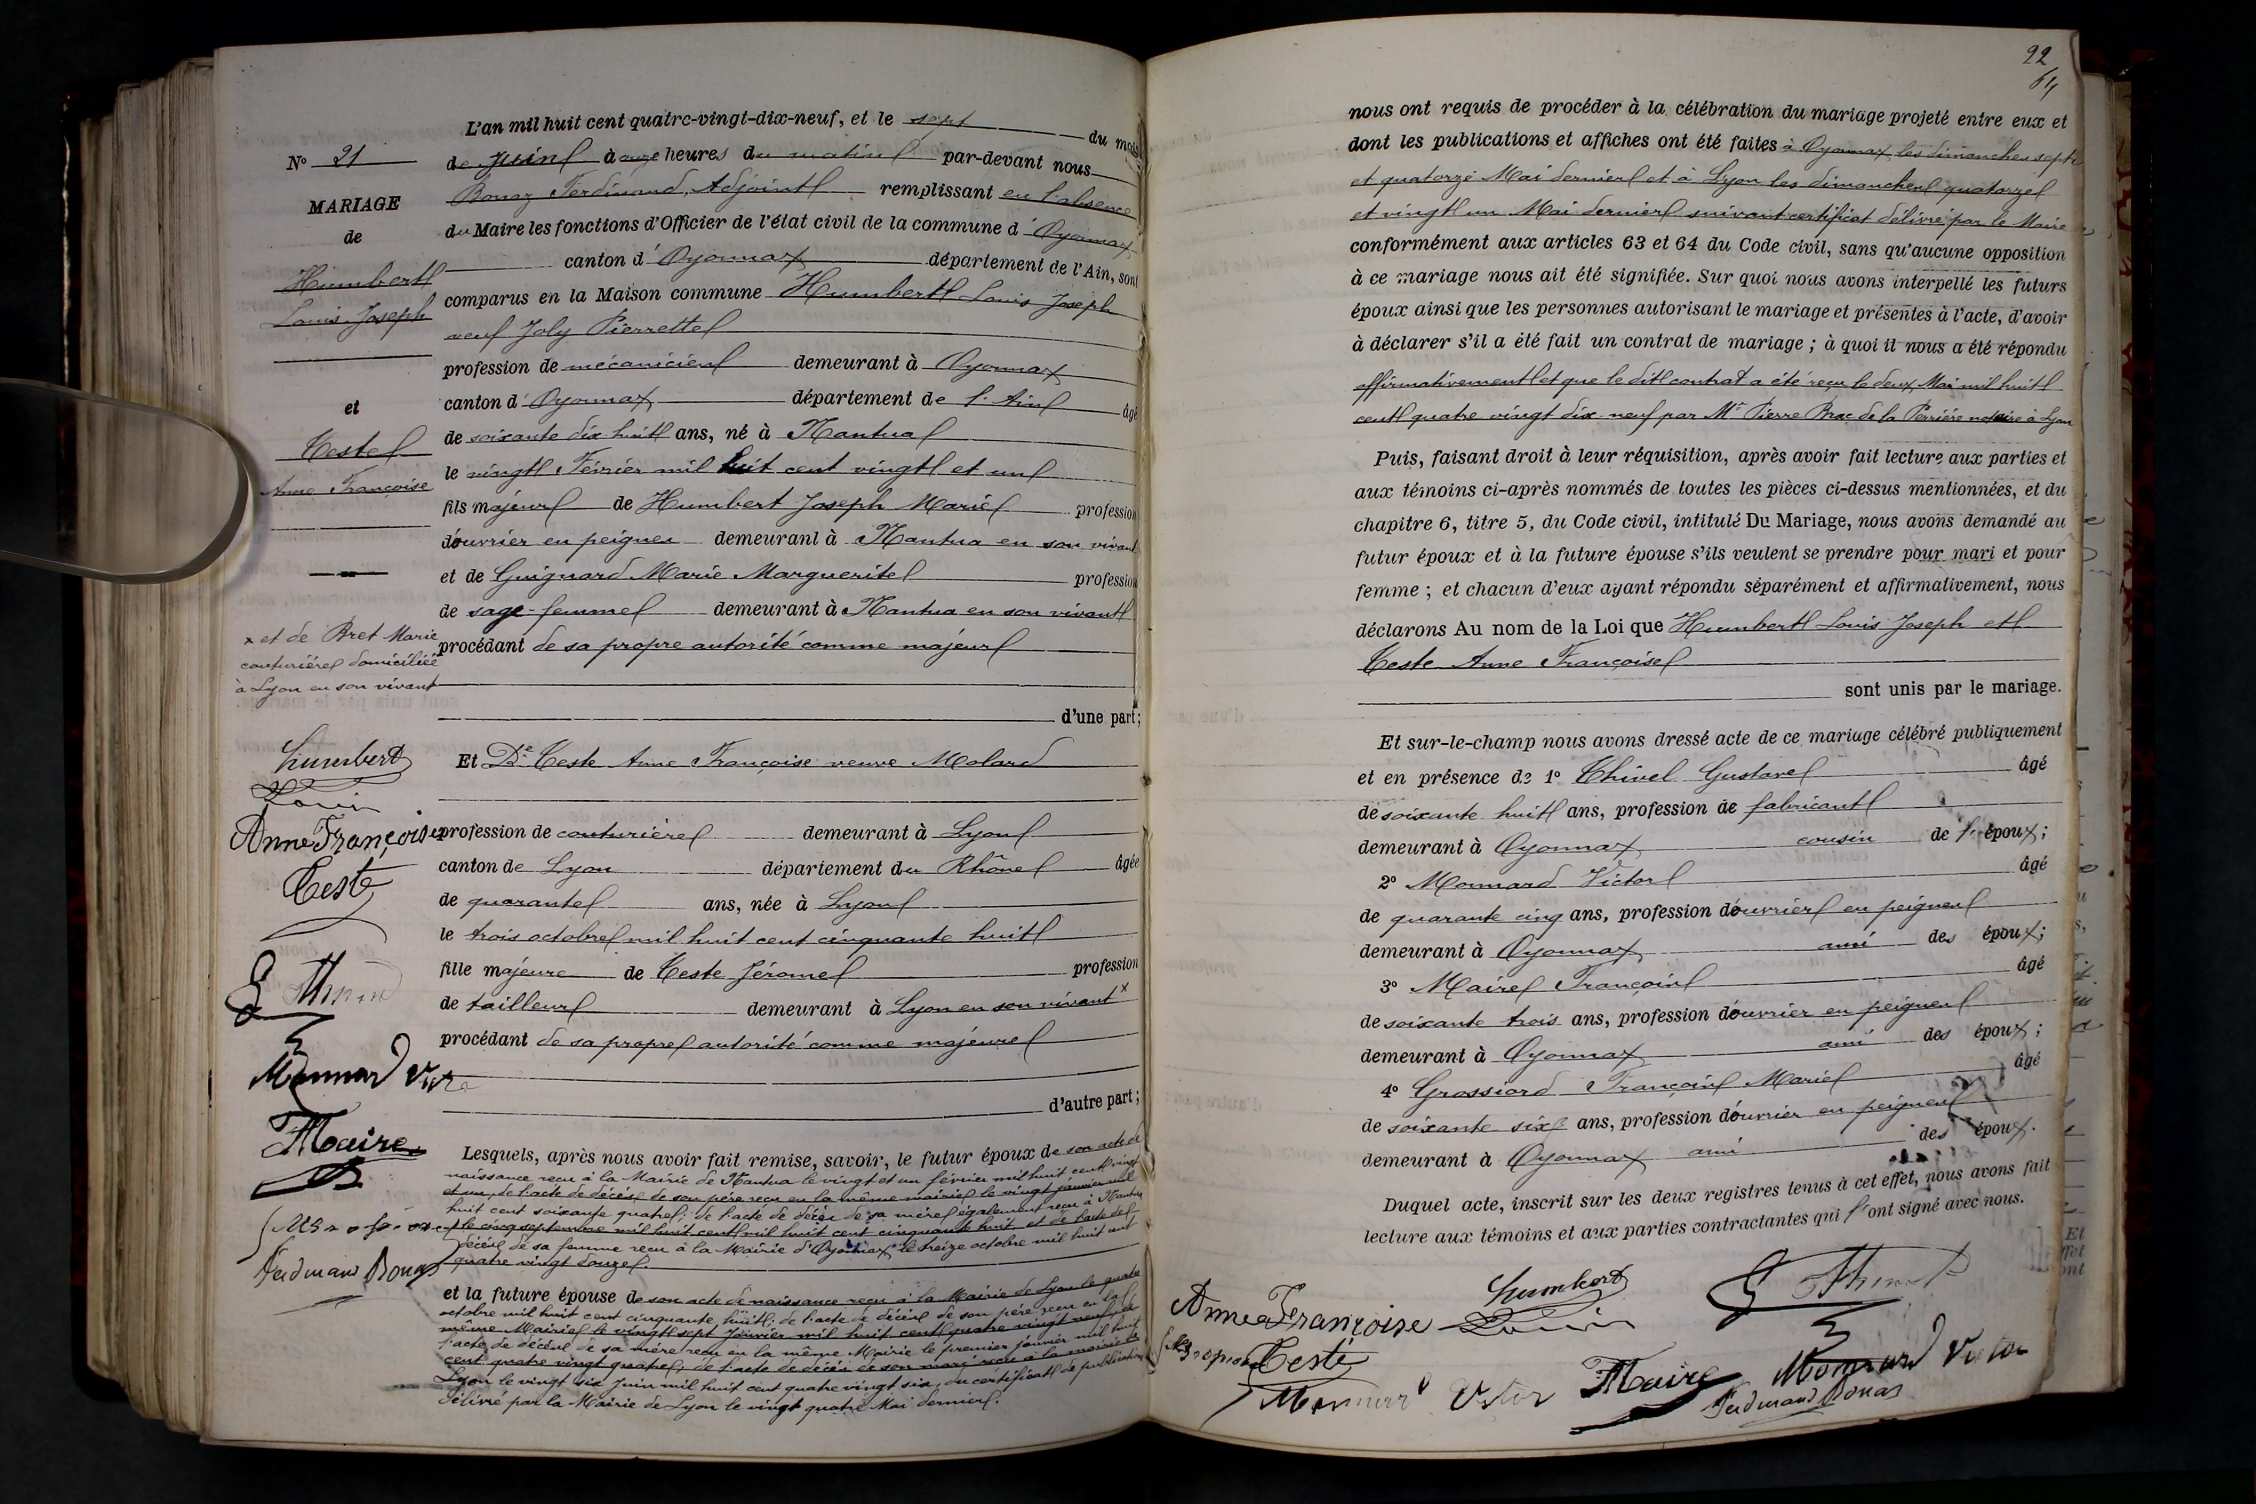 L'an mil huit cent quatre-vingt-dix-neuf, et le sept du mois
N° 21
de Juin à onze heures du matin par-devant nous
Bonaz Ferdinand, Adjoint remplissant en l'absence
MARIAGE
du Maire les fonctions d'Officier de l'état civil de la commune d'Oyonnax
de
canton d'Oyonnax département de l'Ain, sont
Humbert
comparus en la Maison commune Humbert Louis Joseph
Louis Joseph
veuf Joly Pierrette
profession de mécanicien demeurant à Oyonnax
et
canton d'Oyonnax département de l'Ain âgé
Teste
de soixante dix huit ans, né à Nantua
Anne Françoise
le vingt Février mil huit cent vingt et un
fils majeur de Humbert Joseph Marie profession
d'ouvrier en peignes demeurant à Nantua en son vivant
et de Guignard Marie Marguerite profession
de sage-femme demeurant à Nantua en son vivant
x et de Bret Marie
couturière domiciliée
à Lyon en son vivant
procédant de sa propre autorité comme majeur
d'une part;
Humbert
Louis
Et De Teste Anne Françoise veuve Molard
Anne Françoise
Teste
profession de couturière demeurant à Lyon
canton de Lyon département du Rhône âgée
de quarante ans, née à Lyon
le trois octobre mil huit cent cinquante huit
fille majeure de Teste Jérome profession
de tailleur demeurant à Lyon en son vivant x
procédant de sa propre autorité comme majeure
d'autre part;
Monnard Victor
Maire
Ferdinand Bonaz
Lesquels, après nous avoir fait remise, savoir, le futur époux de son acte de
naissance reçu à la Mairie de Nantua le vingt et un février mil huit cent vingt
et un, de l'acte de décès de son père reçu en la même mairie le vingt janvier mil
huit cent soixante quatre; de l'acte de décès de sa mère également reçu à Nantua
le cinq septembre mil huit cent mil huit cent cinquante huit et de l'acte de
décès de sa femme reçu à la Mairie d'Oyonnax le treize octobre mil huit cent
quatre vingt douze.
et la future épouse de son acte de naissance reçu à la Mairie de Lyon le quatre
octobre mil huit cent cinquante huit; de l'acte de décès de son père reçu en la
même Mairie le vingt sept Janvier mil huit cent quatre vingt neuf; de
l'acte de décès de sa mère reçu en la même Mairie le premier janvier mil huit
cent quatre vingt quatre; de l'acte de décès de son mari reçu à la mairie de
Lyon le vingt six Juin mil huit cent quatre vingt six, du certificat de publication
délivré par la Mairie de Lyon le vingt quatre Mai dernier.
22
nous ont requis de procéder à la célébration du mariage projeté entre eux et
dont les publications et affiches ont été faites à Oyonnax, les dimanches sept
et quatorze Mai dernier et à Lyon les dimanches quatorze
et vingt un Mai dernier suivant certificat délivré par le Maire
conformément aux articles 63 et 64 du Code civil, sans qu'aucune opposition
à ce mariage nous ait été signifiée. Sur quoi nous avons interpellé les futurs
époux ainsi que les personnes autorisant le mariage et présentes à l'acte, d'avoir
à déclarer s'il a été fait un contrat de mariage; à quoi il nous a été répondu
affirmativement et que le dit contrat a été reçu le deux Mai mil huit
cent quatre vingt dix-neuf par Me Pierre Brac de la Perrière notaire à Lyon
Puis, faisant droit à leur réquisition, après avoir fait lecture aux parties et
aux témoins ci-après nommés de toutes les pièces ci-dessus mentionnées, et du
chapitre 6, titre 5, du Code civil, intitulé Du Mariage, nous avons demandé au
futur époux et à la future épouse s'ils veulent se prendre pour mari et pour
femme; et chacun d'eux ayant répondu séparément et affirmativement, nous
déclarons Au nom de la Loi que Humbert Louis Joseph et
Teste Anne Françoise
sont unis par le mariage.
Et sur-le-champ nous avons dressé acte de ce mariage célébré publiquement
et en présence de 1° Thivel Gustave âgé
de soixante huit ans, profession de fabricant
demeurant à Oyonnax cousin de l'époux;
2° Monnard Victor âgé
de quarante cinq ans, profession d'ouvrier en peignes
demeurant à Oyonnax ami des époux;
3° Maire François âgé
de soixante trois ans, profession d'ouvrier en peignes
demeurant à Oyonnax ami des époux;
4° Grossiord François Marie âgé
de soixante six ans, profession d'ouvrier en peignes
demeurant à Oyonnax ami des époux.
Duquel acte, inscrit sur les deux registres tenus à cet effet, nous avons fait
lecture aux témoins et aux parties contractantes qui l'ont signé avec nous.
Humbert
Louis
Anne Françoise
Teste
Monnard Victor
Maire
Monnard Victor
Ferdinand Bonaz